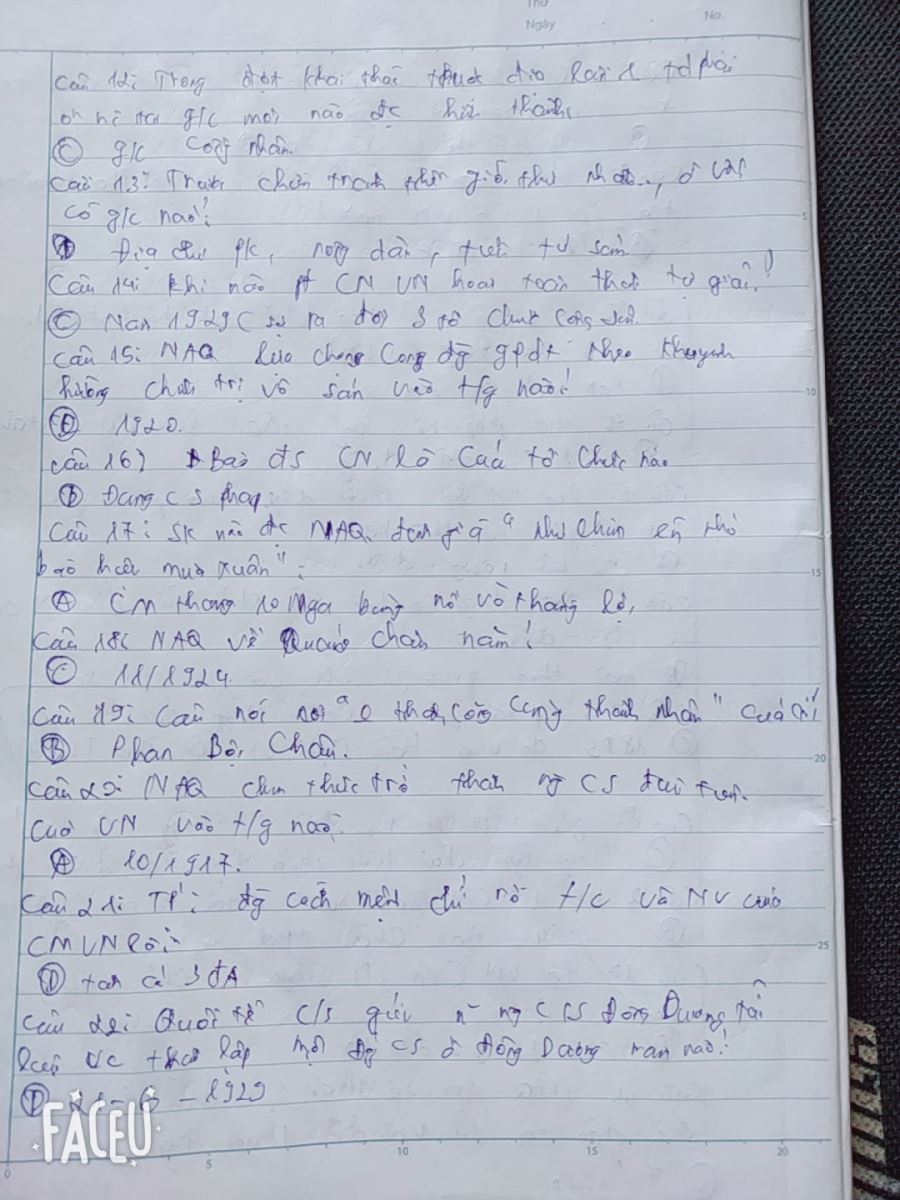 Thứ
Ngày
No.
Câu 12: Trong đợt khai thác thuộc địa lần 1, td Pháp
ở nc ta g/c mới nào đc hình thành
Ⓒ g/c công nhân.
Câu 13: Trước chiến tranh thế giới thứ nhất, ở VN
có g/c nào?
Ⓐ Địa chủ pk, nông dân, tiểu tư sản.
Câu 14: Khi nào pt CN VN hoàn toàn tự giác?
Ⓒ Năm 1929 (sự ra đời 3 tổ chức cộng sản.
Câu 15: NAQ lựa chọn con đg gpdt theo khuynh
hướng chính trị vô sản vào t/g nào?
1920.
Câu 16) Báo đs CN là của tổ chức nào
Ⓓ Đảng CS pháp.
Câu 17: SK nào đc NAQ đánh giá "như chim én nhỏ
báo hiệu mùa xuân":
Ⓐ CM tháng 10 Nga bùng nổ và thắng lợi.
Câu 18: NAQ về Quảng Châu năm?
Ⓒ 11/1924.
Câu 19: Câu nói nói "0 thành công cũng thành nhân" của
Ⓑ Phan Bội Châu.
Câu 20: NAQ chính thức trở thành ng CS đầu tiên
của VN vào t/g nào.
Ⓐ 10/1917.
Câu 21: TP: đg cách mệnh chỉ rõ t/c và NV của
CMVN là:
Ⓓ tất cả 3 đA
Câu 22: Quốc tế C/S gửi ng CS Đông Dương tài
liệu lập một đg CS ở Đông Dương nào?
Ⓓ - 1929
FACEU
5
10
15
20
25
0
5
10
15
20